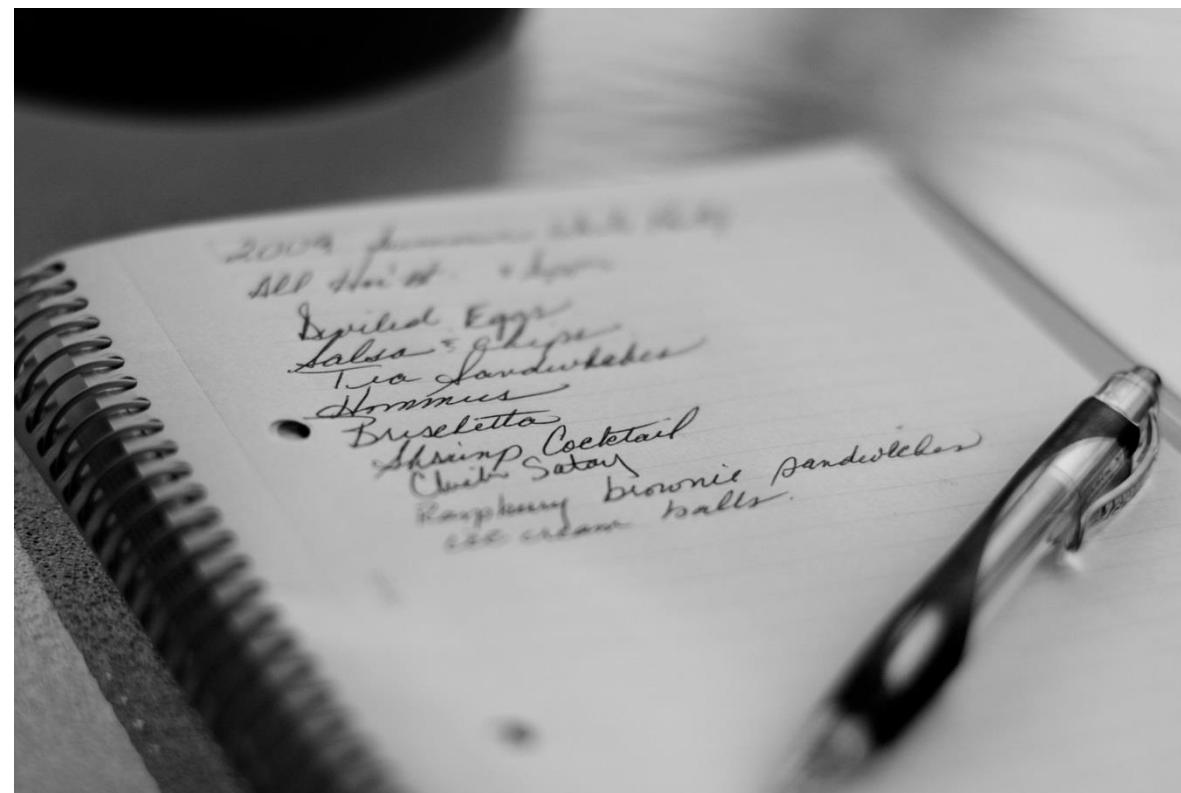 2009 Summer White Party
All Hor's
Deviled Eggs
Salsa & Chips
Tea Sandwhches
Hommus
Bruschetta
Shrimp Cocktail
Satay
Raspberry brownie sandwiches
ice cream balls.